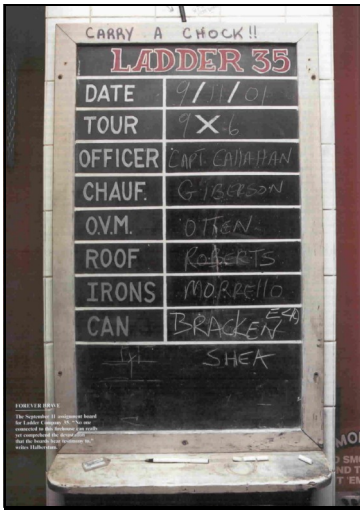 CARRY A CHOCK!!
LADDER 35
DATE 9/11/01
TOUR 9X6
OFFICER CAPT. CALLAHAN
CHAUF. GIBERSON
O.V.M. OTTEN
ROOF ROBERTS
IRONS MORRELLO
CAN BRACKEN
SHEA
FOREVER BRAVE
The September 11 assignment board
for Ladder Company 35. "No one
connected to this firehouse can really
yet comprehend the
that the boards bear testimony to,"
writes Halberstam.